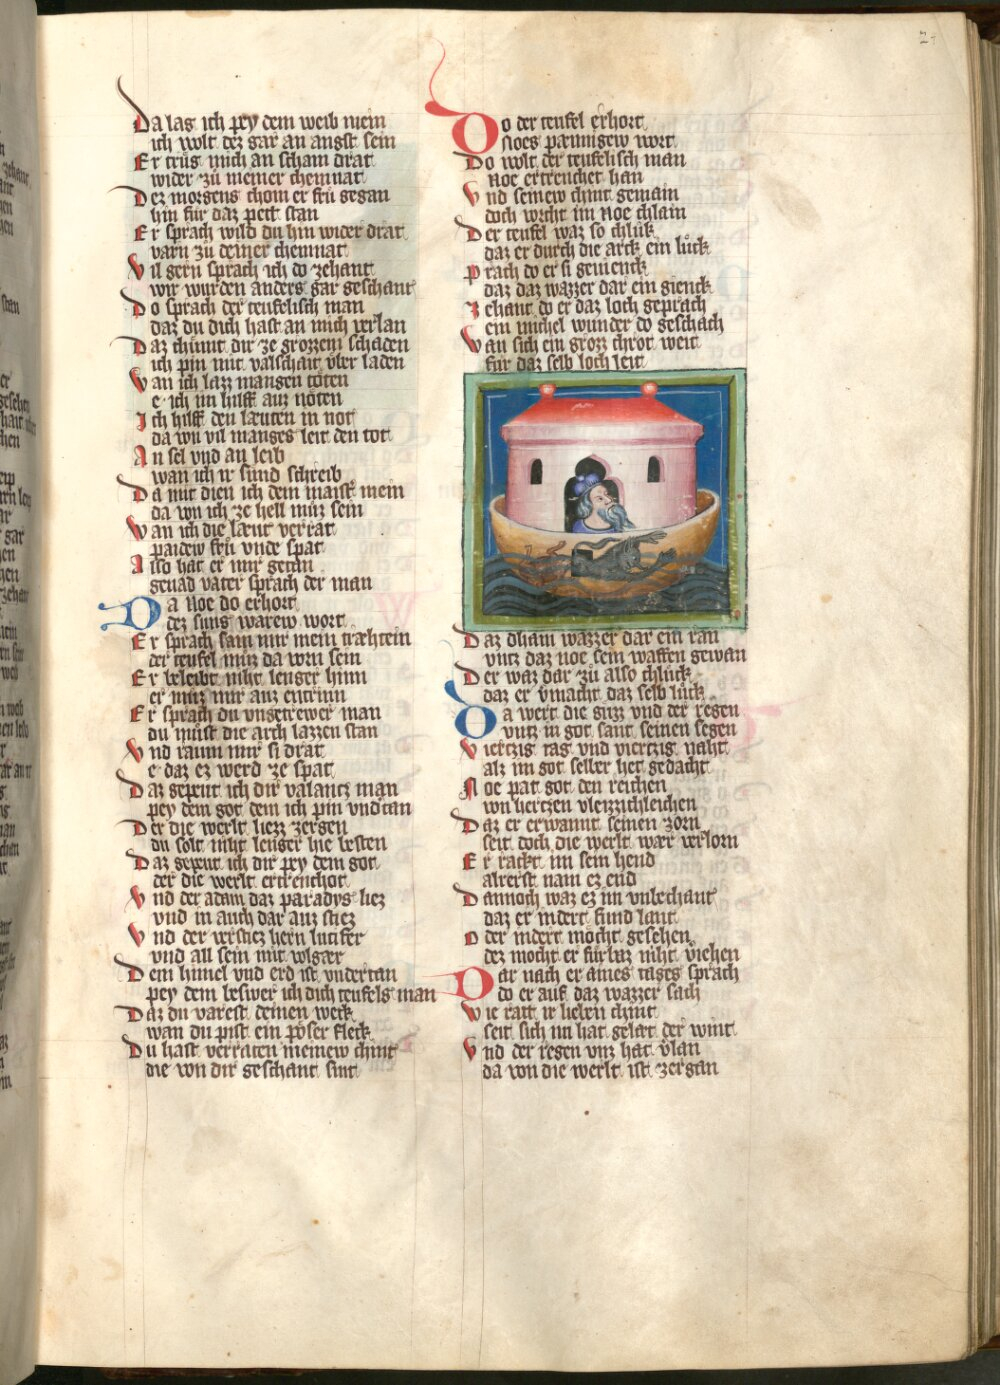 24
Da lag ich pey dem weib mein
ich wolt dez gar an angst sein
Er trug mich an scham drat
wider zu meiner chemnat
Dez morgens chom er fru gegan
hin für daz pett stan
Er sprach wild du hin wider drat
varn zu deiner chemnat
Vil gern sprach ich do zehant
wir wurden anders gar geschant
Do sprach der teufelisch man
daz du dich hast an mich verlan
Daz chumt dir ze grozzem schaden
ich pin mit valschait vber laden
Wan ich lazz mangen töten
e ich im hilff auz nöten
Ich hilff den læuten in not
da von vil manges leit den tot
An sel vnd an leib
wan ich ir sund schreib
Da mit dien ich dem maistr mein
da von ich ze hell muz sein
Wan ich die læut verrat
paidew fru vnde spat
Also hat er mir getan
genad vater sprach der man
Da Noe do erhort
dez suns warew wort
Er sprach sam mir mein træhtein
der teufel muz da vorn sein
Er beleibt niht lenger hinn
er muz mir auz entrinn
Er sprach du vngetrewer man
du must die arch lazzen stan
Vnd raum mir si drat
e daz ez werd ze spat
Daz gepeut ich dir valantz man
pey dem got dem ich pin vndtan
Der die werlt liezz zergen
du solt niht lenger hie besten
Daz gepeut ich dir pey dem got
der die werlt ertrenchot
Vnd der adam daz paradys liez
vnd in auch dar auz stiez
Vnd der verstiez hern lucifer
vnd all sein mit volgær
Dem himel vnd erd ist vndertan
pey dem beswer ich dich teufels man
Daz du varest deinen weck
wan du pist ein pöser fleck
Du hast verraten meinew chint
die von dir geschant sint
Do der teufel erhort
Noes pænnigew wort
Do wolt der teufelisch man
Noe ertrenchet han
Vnd seinew chint gemain
doch vorcht im Noe chlain
Der teufel waz so chluk
daz er durch die arck ein luck
Prach do er si gevienck
daz daz wazzer dar ein gienck
Zehant do er daz loch geprach
ein michel wunder do geschach
Wan sich ein grozz chrot weit
für daz selb loch leit
Daz dhain wazzer dar ein ran
vntz daz noe sein waffen gewan
Der waz dar zu also chluck
daz er vmacht daz selb luck
Da wert die guzz vnd der regen
vntz in got sant seinen segen
Viertzig tag vnd viertzig naht
alz im got selber het gedacht
Noe pat got den reichen
von hertzen vleizzichleichen
Daz er erwannt seinen zorn
seit doch die werlt wær verlorn
Er rackt im sein hend
alrerst nam ez end
Dannoch waz ez im vnbechant
daz er indert fund lant
Oder indert mocht gesehen
dez mocht er fürbaz niht viehen
Dar nach er aines tages sprach
do er auf daz wazzer sach
Wie ratt ir lieben chint
seit sich nu hat gelait der wint
Vnd der regen vnz hat vlan
da von die werlt ist zergan